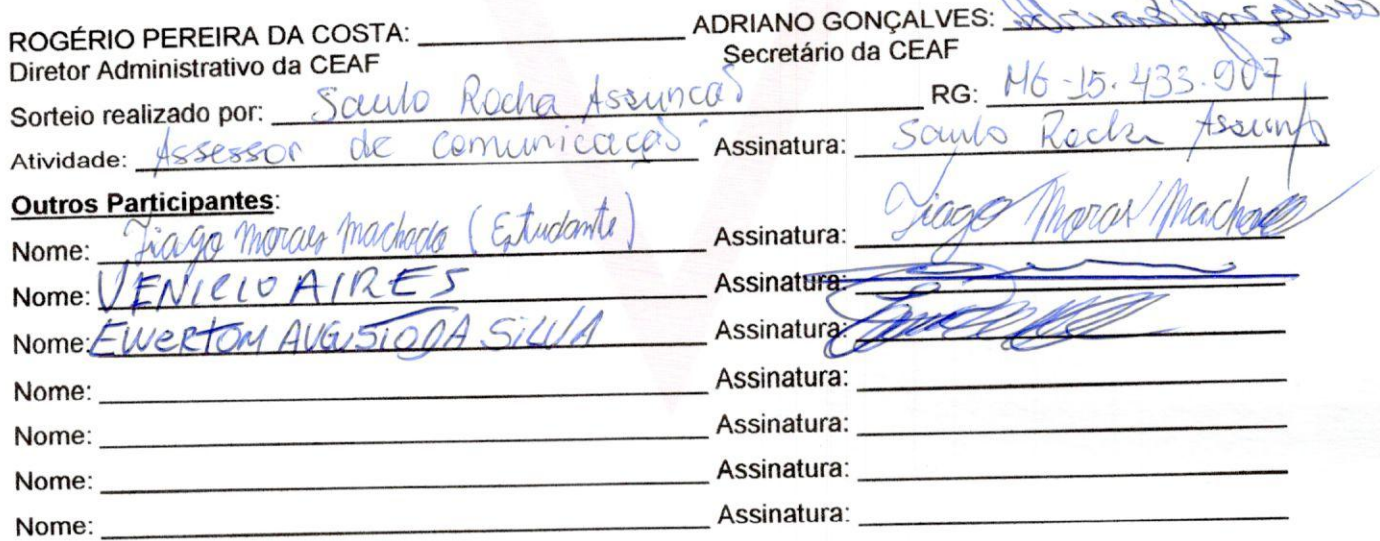 ROGÉRIO PEREIRA DA COSTA: ADRIANO GONÇALVES: Adriano Gonçalves
Diretor Administrativo da CEAF Secretário da CEAF
Sorteio realizado por: Saulo Rocha Assuncaõ RG: MG-15.433.907
Atividade: Assessor de comunicação Assinatura: Saulo Rocha
Outros Participantes:
Nome: Tiago Moraes Machado (Estudante) Assinatura: Tiago Moraes Machado
Nome: VENICIO AIRES Assinatura:
Nome: EWERTOM AUGUSTO DA SILVA Assinatura:
Nome: Assinatura:
Nome: Assinatura:
Nome: Assinatura:
Nome: Assinatura: